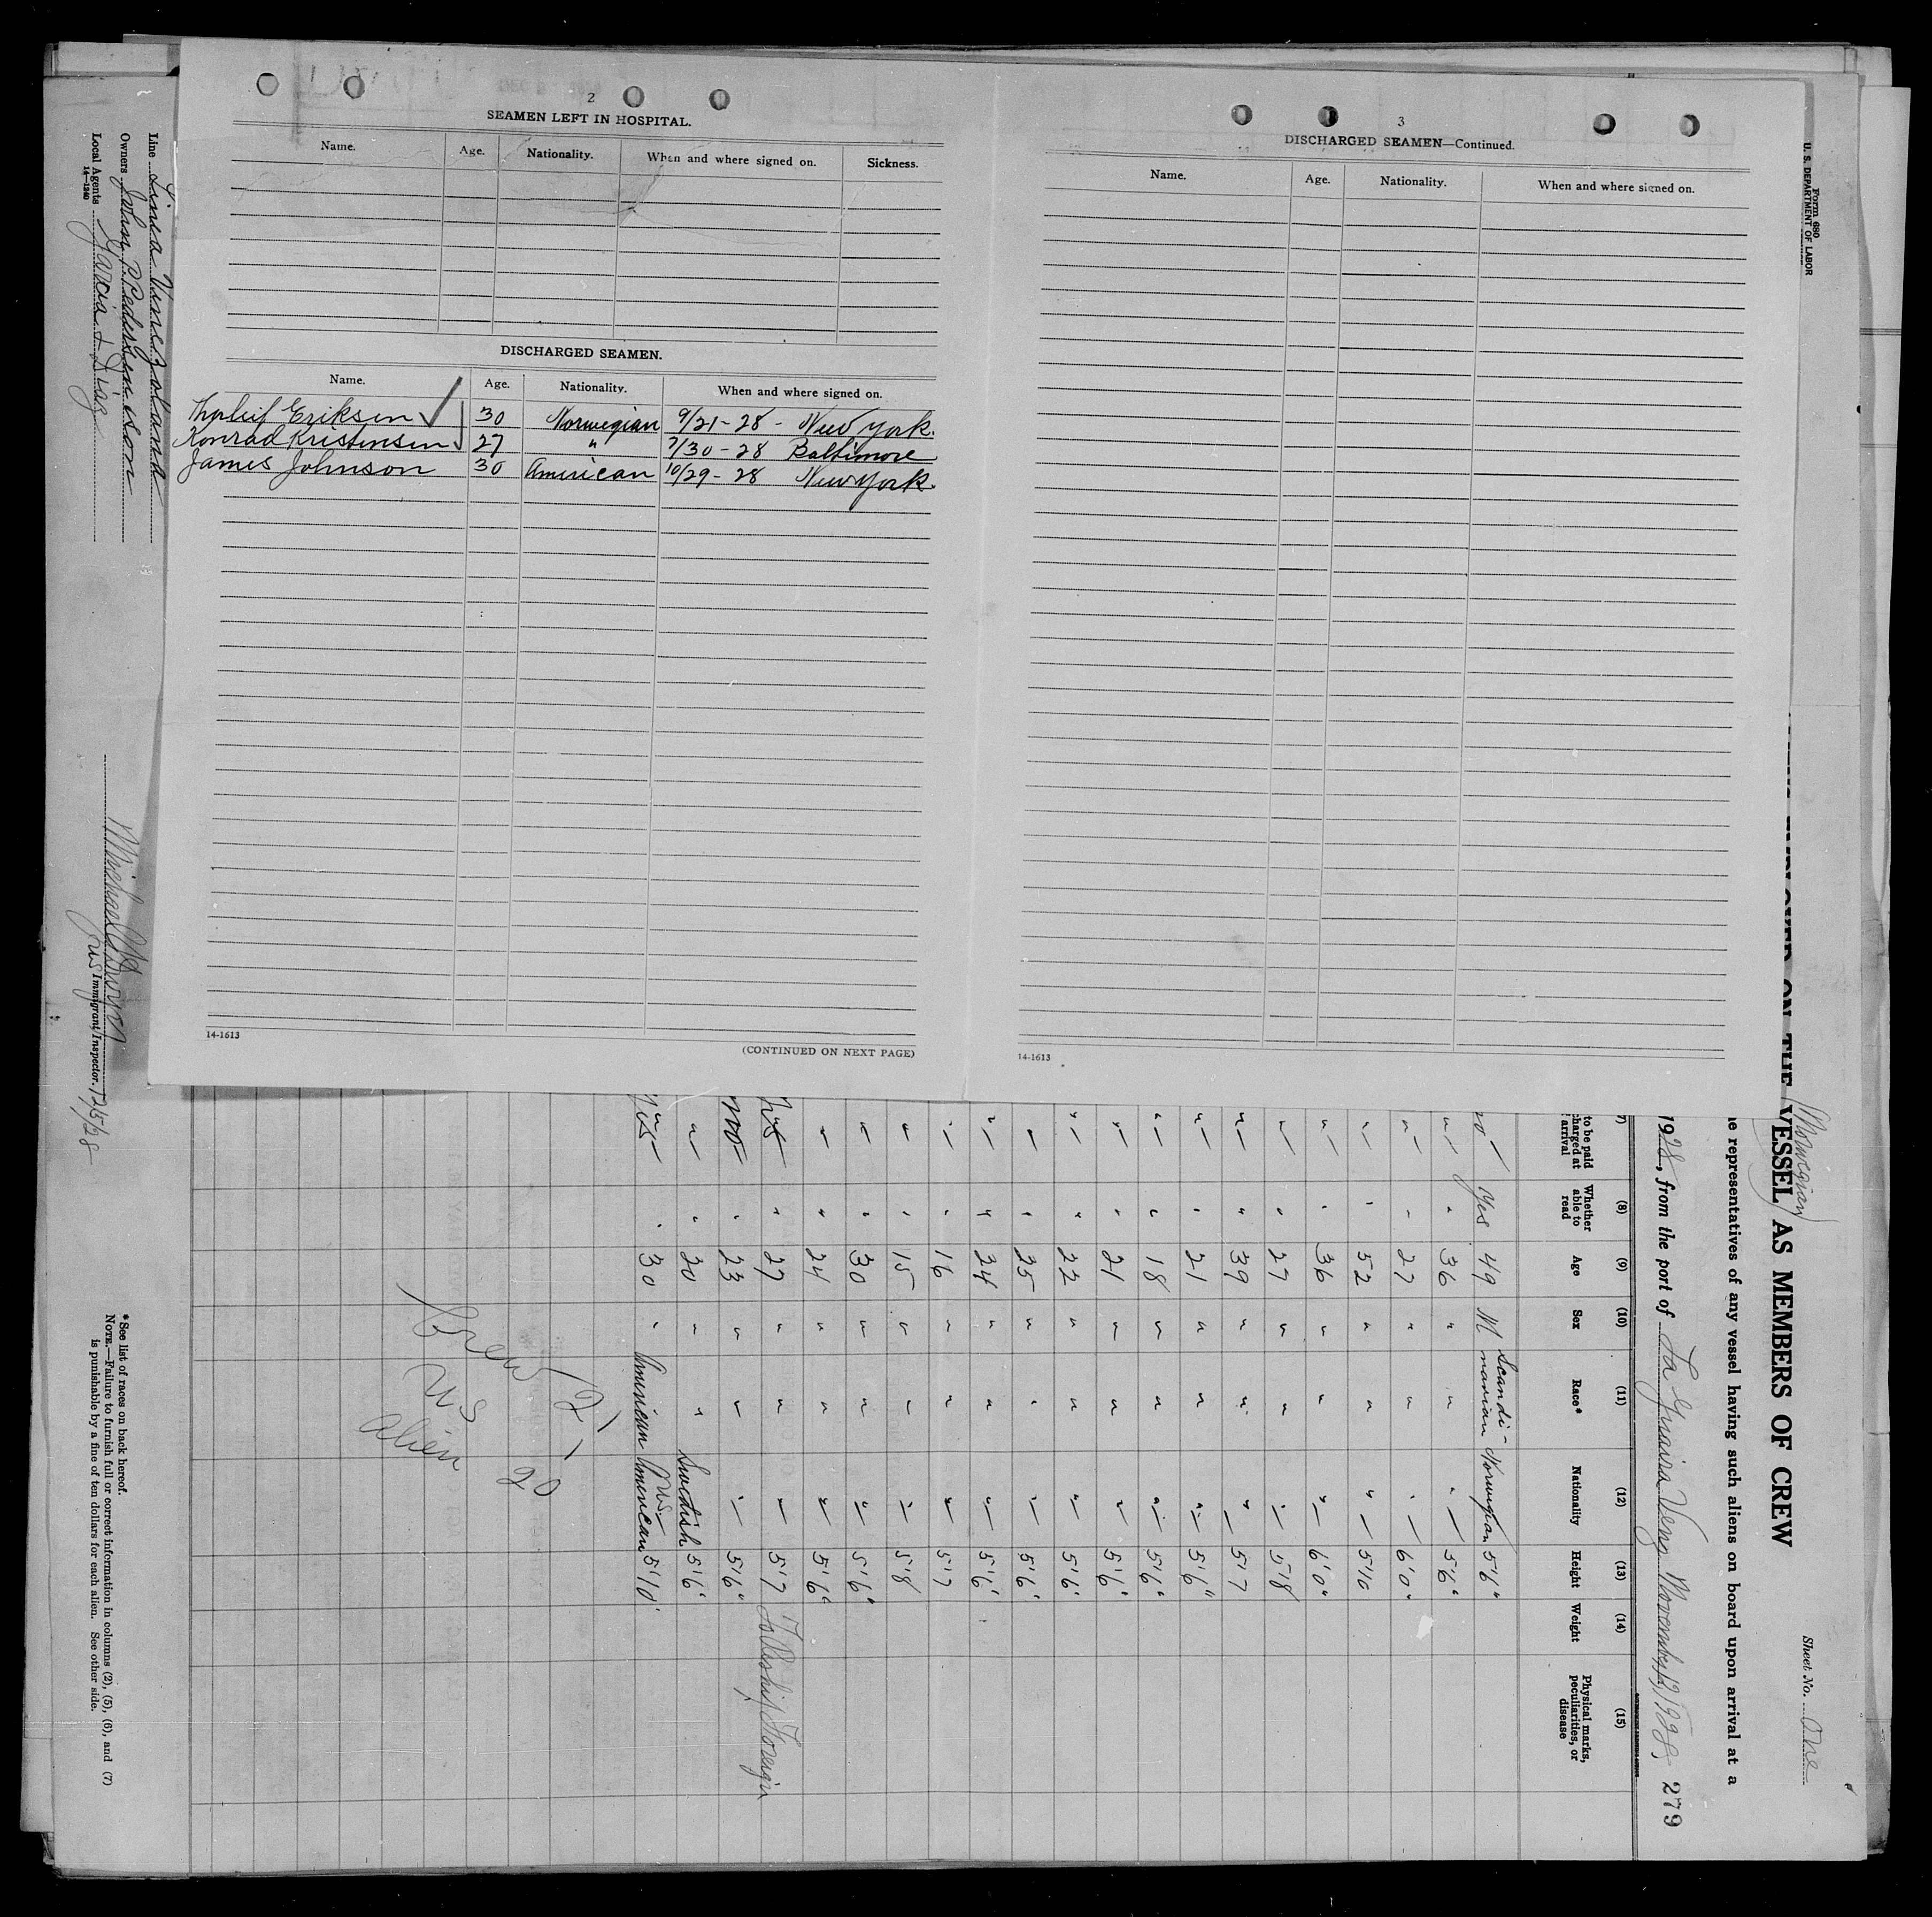 2
SEAMEN LEFT IN HOSPITAL.
Name. Age. Nationality. When and where signed on. Sickness.
DISCHARGED SEAMEN.
Name. Age. Nationality. When and where signed on.
Thorleif Eriksen 30 Norwegian 9/21-28- New York.
Konrad Kristensen 27 " 7/30-28 Baltimore
James Johnson 30 American 10/29-28 New York.
14-1613
(CONTINUED ON NEXT PAGE)
3
DISCHARGED SEAMEN—Continued.
Name. Age. Nationality. When and where signed on.
14-1613
Form 680
U. S. DEPARTMENT OF LABOR
Sheet No. One
(Norwegian)
ON THE VESSEL AS MEMBERS OF CREW
representatives of any vessel having such aliens on board upon arrival at a
1928, from the port of La Guaira Venz. November 19, 1928, 279
7) (8) (9) (10) (11) (12) (13) (14) (15)
to be paid charged at arrival
Whether able to read
Age
Sex
Race*
Nationality
Height
Weight
Physical marks, peculiarities, or disease
no Yes 49 M Scandinavian Norwegian 5'6"
" " 36 " " " 5'6"
" " 27 " " " 6'0"
" " 52 " " " 5'10
" " 36 " " " 6'0"
" " 27 " " " 5'8
" " 39 " " " 5'7
" " 21 " " " 5'6"
" " 18 " " " 5'6"
" " 21 " " " 5'6"
" " 22 " " " 5'6"
" " 25 " " " 5'6"
" " 24 " " " 5'6"
" " 16 " " " 5'7
" " 15 " " " 5'8
" " 30 " " " 5'6"
" " 24 " " " 5'6"
Yes " 27 " " " 5'7 To Reship Foreign
no " 23 " " " 5'6"
" " 20 " " Swedish 5'6"
Yes " 30 " American American 5'10"
US
Crew 21
US 1
Alien 20
*See list of races on back hereof.
NOTE.—Failure to furnish full or correct information in columns (2), (5), (6), and (7)
is punishable by a fine of ten dollars for each alien. See other side.
Line
Owners John P Pedersen & son
Local Agents Garcia & Diaz
14—1240
US Immigrant Inspector. 12/5/28